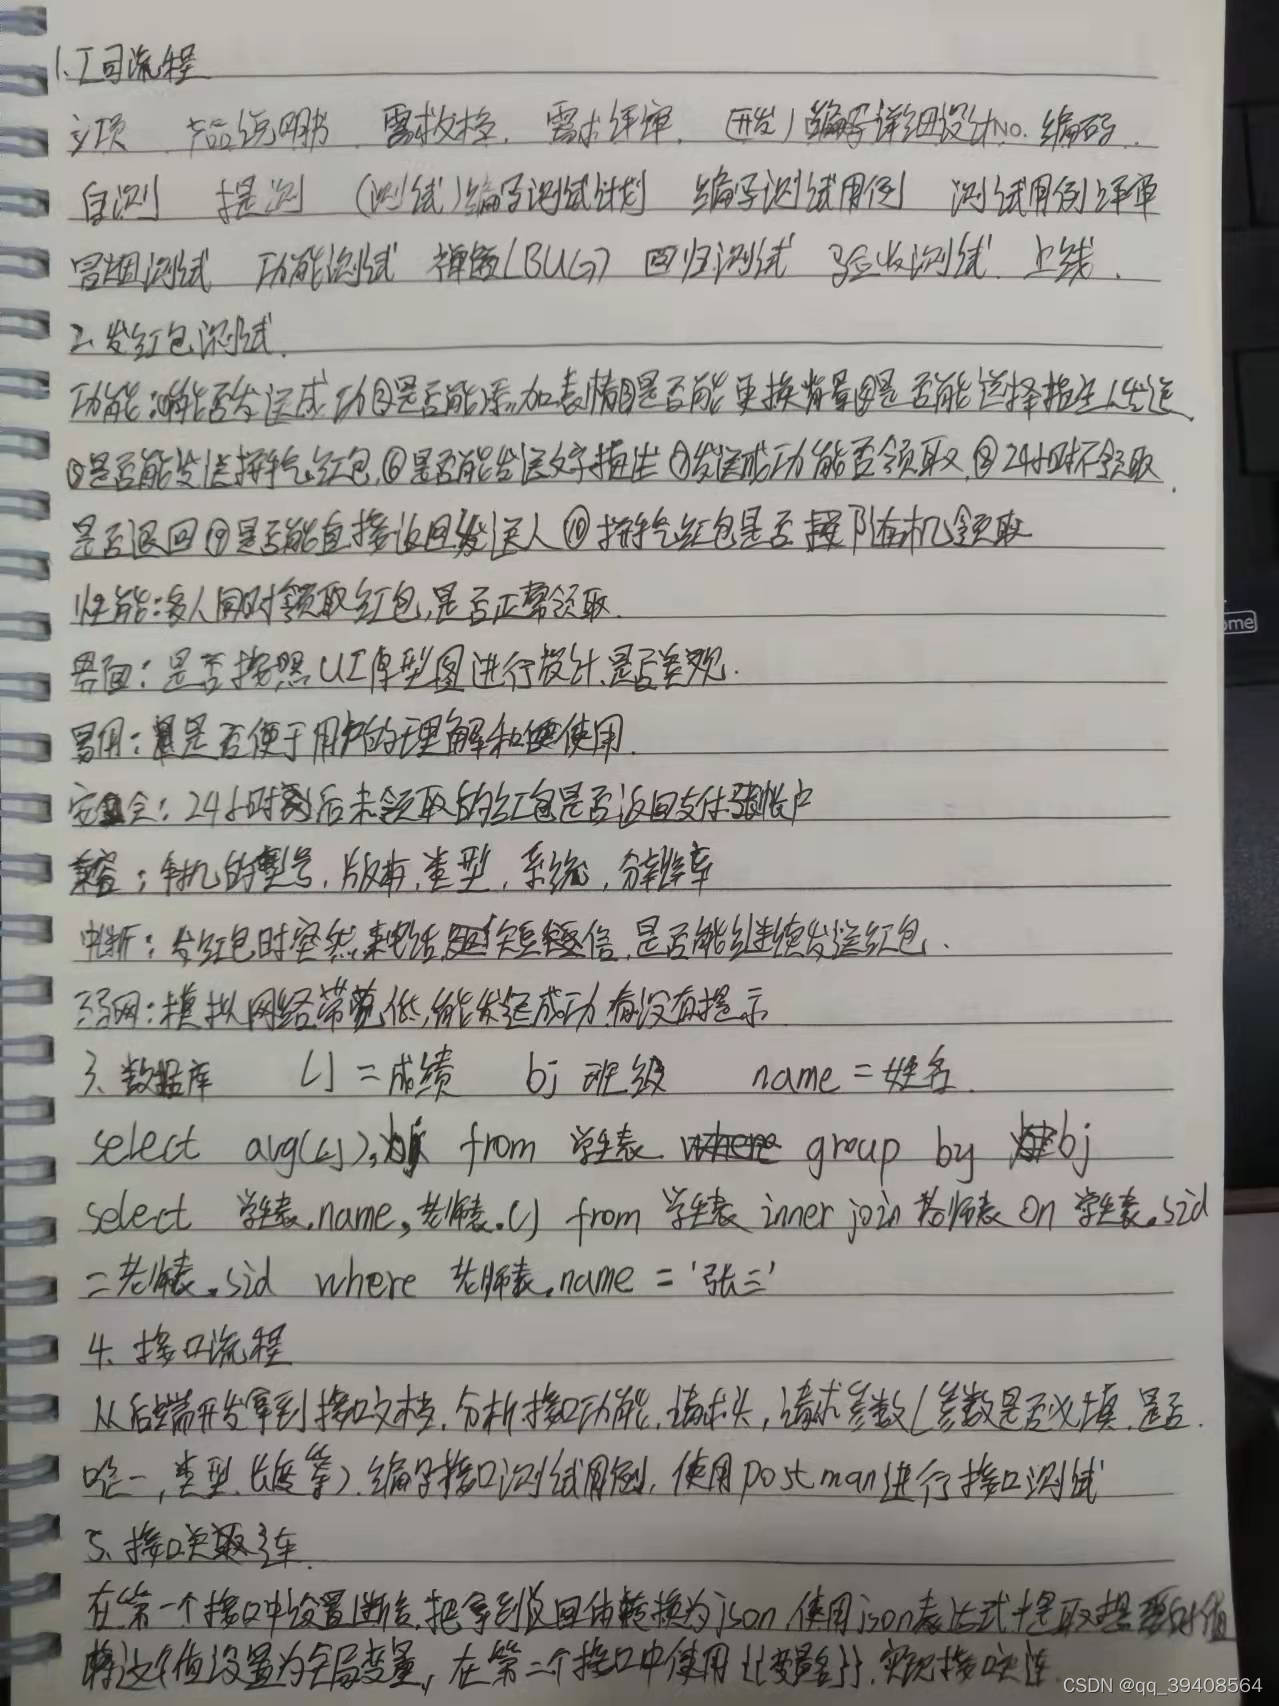 1.公司流程
立项 产品说明书 需求文档. 需求评审. (开发)编写详细设计No. 编码.
自测 提测 (测试)编写测试计划 编写测试用例 测试用例评审
冒烟测试 功能测试 禅道(BUG) 回归测试 验收测试. 上线.
2.发红包测试.
功能:①能否发送成功②是否能添加表情③是否能更换背景④是否能选择指定人发送
⑤是否能发送拼手气红包,⑥是否能发送文字描述⑦发送成功能否领取,⑧24小时不领取
是否退回⑨是否能直接返回发送人⑩拼手气红包是否随机领取
性能:多人同时领取红包,是否正常领取.
界面:是否按照UI原型图进行设计.是否美观.
易用:是否便于用户的理解和使用.
安全:24小时后未领取的红包是否返回支付帐户
兼容:手机的型号,版本,类型,系统,分辨率
中断:发红包时突然来电话,短信,是否能继续发送红包.
弱网:模拟网络带宽低,能发送成功.有没有提示
3、数据库 cj=成绩 bj 班级 name=姓名.
select avg(cj),bj from 学生表 group by bj
select 学生表.name,老师表.cj from 学生表 inner join 老师表 on 学生表.sid
=老师表.sid where 老师表.name='张三'
4、接口流程
从后端开发拿到接口文档,分析接口功能,请求头,请求参数(参数是否必填,是否
唯一,类型.长度等).编写接口测试用例,使用postman进行接口测试
5、接口关联
在第一个接口中设置断言,把拿到返回体转换为json,使用json表达式提取想要的值
将这个值设置为全局变量,在第二个接口中使用{{变量名}}.实现接口关连
ome
CSDN @qq_39408564